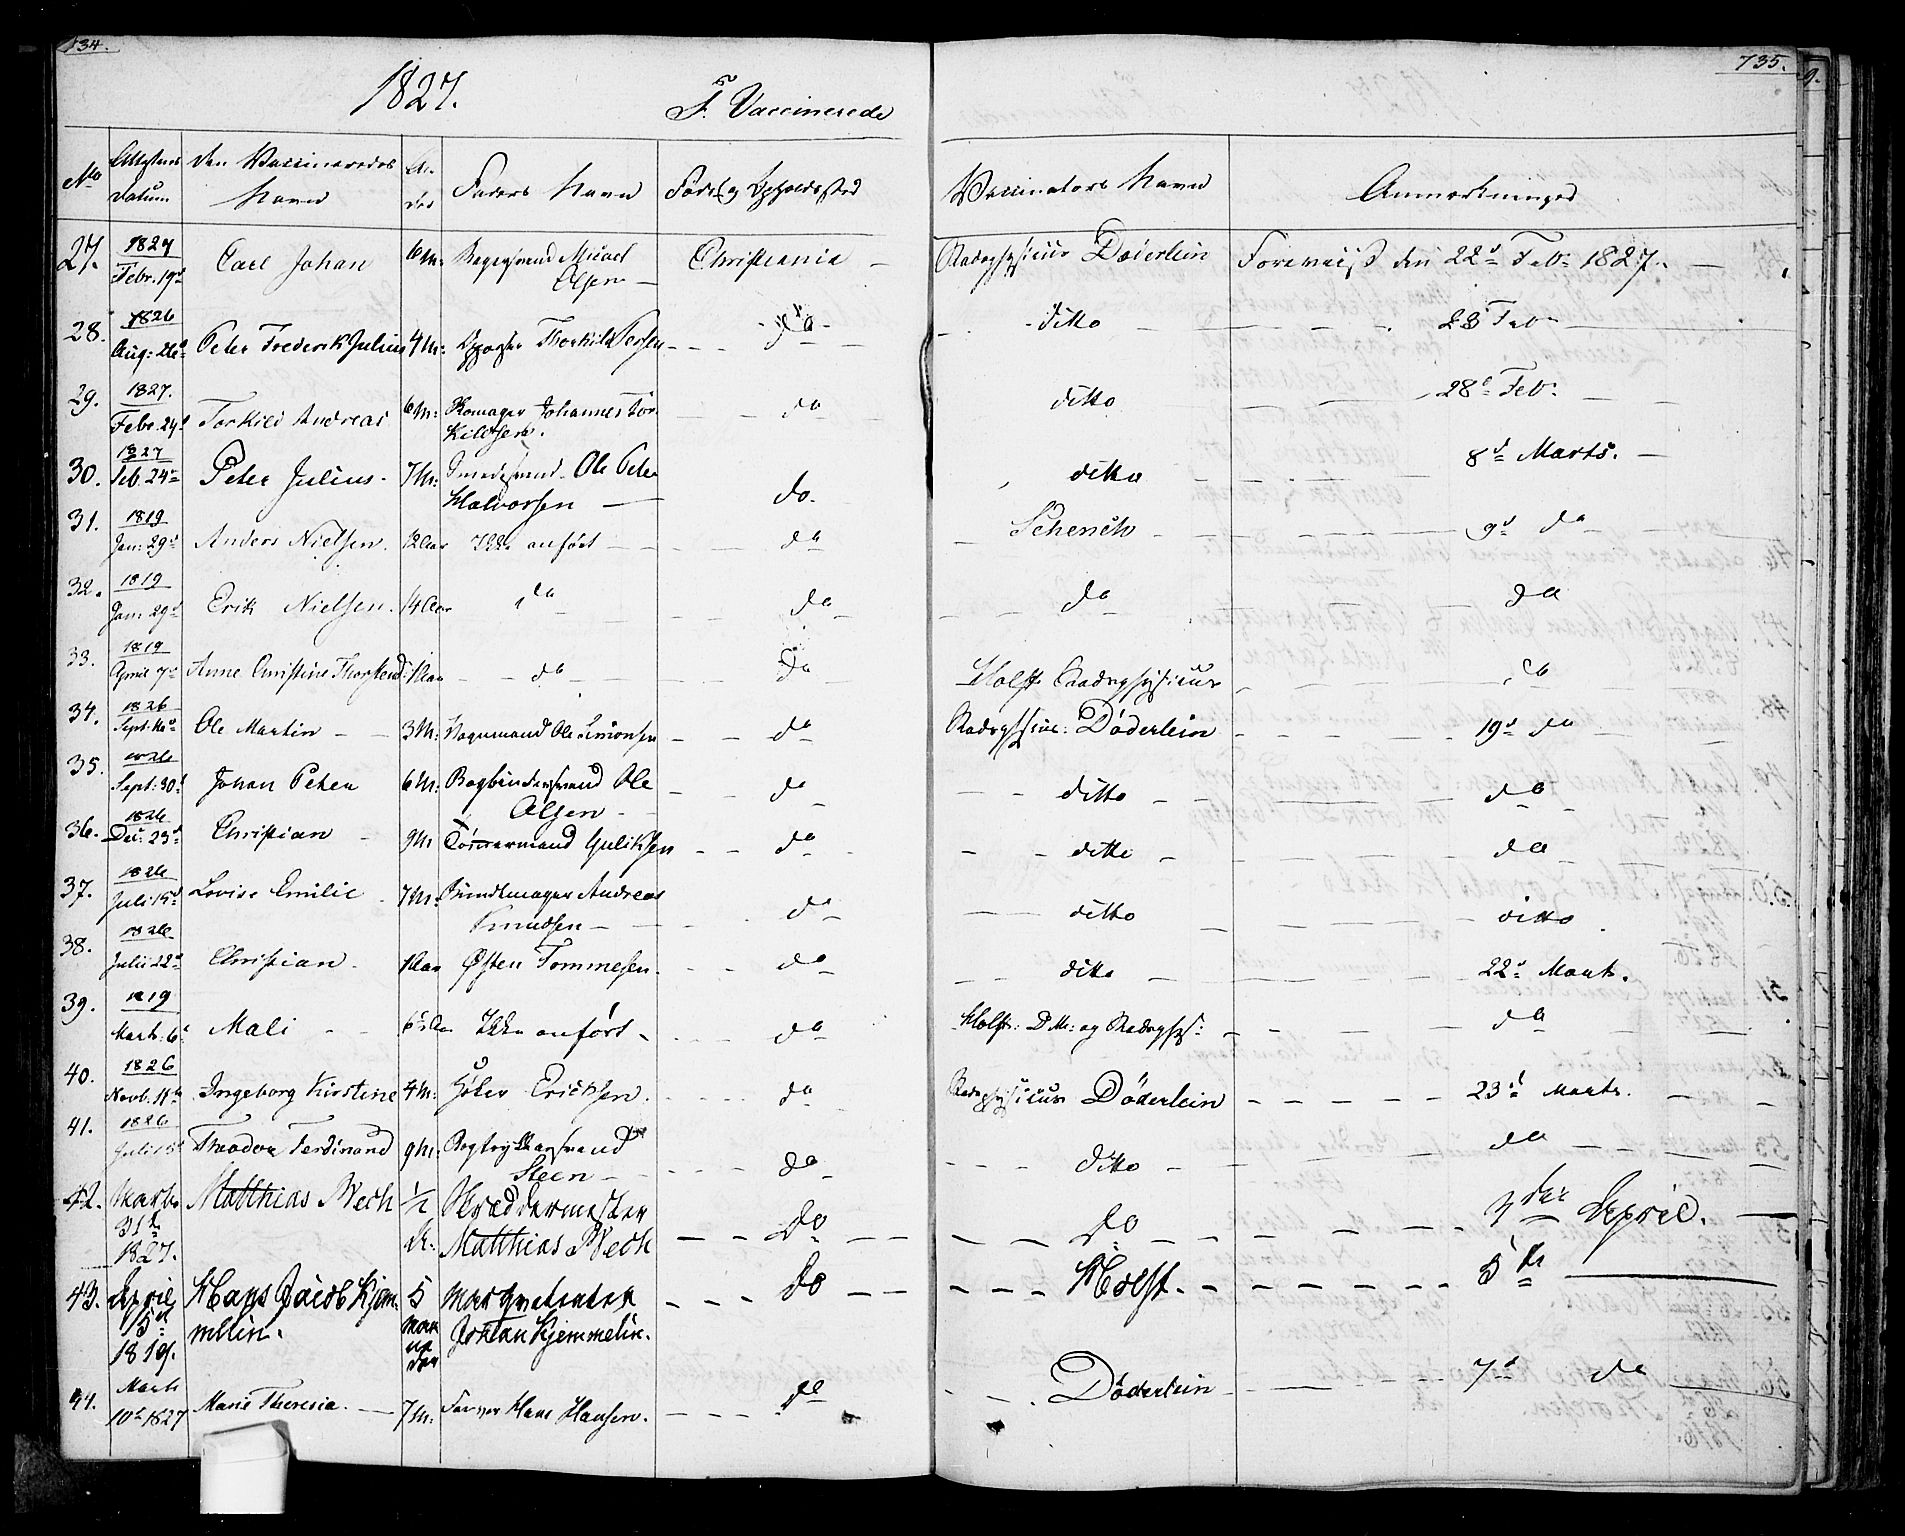 734. 735.
1827. F. Vaccinerede
No Attestens Datum den Vaccineredes Navn Al- der Faders Navn Føde og Opholdssted Vaccinators Navn Anmærkninger
27. 1827 Febr. 19d Carl Johan 6 M: Bagersvend Micael Olsen Christiania Stadsphysicus Döderlein Foreviist den 22d Feb: 1827.
28. 1826 Aug: 26d Peter Frederik Julius 4 M: Thorkild do ditto 23 Feb
29. 1827. Febr. 24d Torkild Andreas 6 M: Johannes Torkildsen. do ditto 28d Feb.
30. 1827 Feb. 24de Peter Julius. 7 M: Smedesvend Ole Peter Halvorsen do. ditto 8d Marts.
31. 1819 Jan: 29d Anders Nielsen. 12 Aar Ikke anført do Schench 9d do
32. 1819 Jan: 29d Erik Nielsen. 14 Aar do do do do
33. 1819 April 7d Anne Christine 1 Aar do do Holst Stadsphysicus do
34. 1826 Sept: Ole Martin 3 M: Vognmand Ole Simonsen do Stadsphysicus: Döderlein 19d do
35. 1826 Sept: 30d Johan Peter 6 M: Bogbindersvend Ole Olsen do ditto do
36. 1826 Dec: 23d Christian 9 M: Tømmermand Guliksen do ditto do
37. 1826 Juli 15d Lovise Emilie 7 M: Bundtmager Andreas Knudsen do ditto ditto
38. 1826 Julii 22d Christian. 1 Aar Østen Tommesen. do ditto 22d Marts.
39. 1819 Marts 6d Mali 6 Aar Ikke anført do Holst: D. M: og Stadsphys: do
40. 1826 Novb. 11te Ingeborg Kirstine 4 M: Ericksen. do Stadsphysicus Döderlein 23d Marts.
41. 1826 Juli 15d Theodor Ferdinand 9 M: Bogtrykkersvend Steen do ditto do
42. Marts 31d 1827. Matthias Wech 1/2 A: Skræddermester Matthias Wech do do 3die April.
43. April 15d 1819. Hans Jacob Kjemmelin. 5 Maaneder Marqvetenter Johan Kjemmelin. do Holst. 5te
44. Marts 10d 1827 Marie Theresia. 7 M: Farver Hans Hansen. do Döderlein 7d do